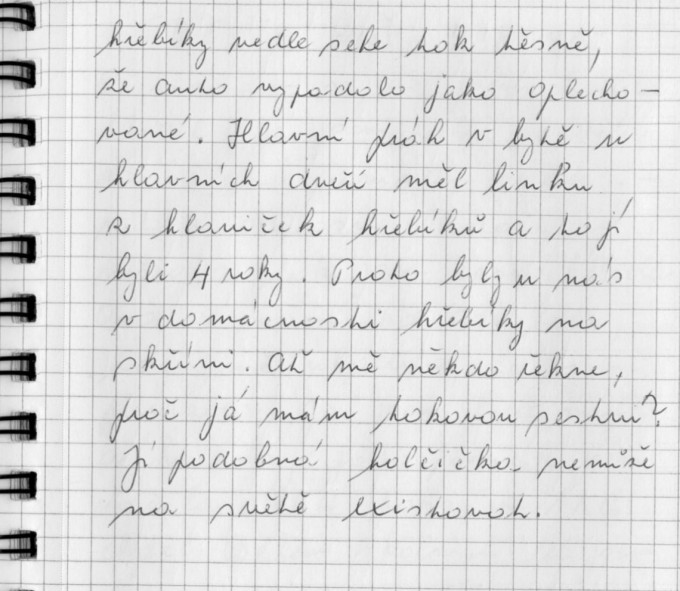 hřebíky vedle sebe tak těsně,
že auto vypadalo jako oplecho-
vané. Hlavní práh v bytě u
hlavních dveří měl linku
z hlaviček hřebíků a to jí
byli 4 roky. Proto byly u nás
v domácnosti hřebíky na
skříni. Ať mě někdo řekne,
proč já mám takovou sestru?
Jí podobná holčička nemůže
na světě existovat.